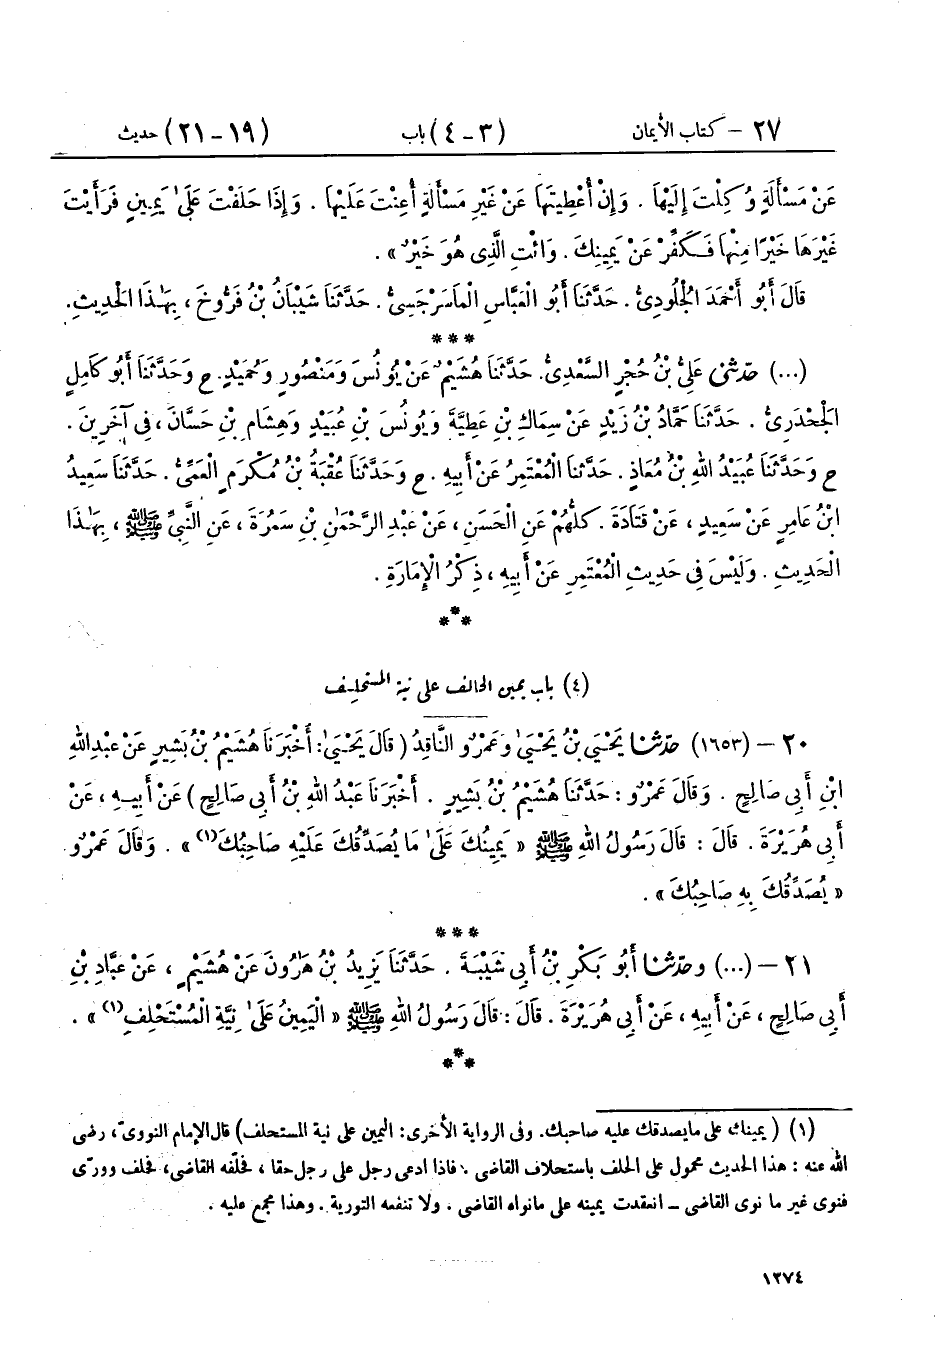 ٢٧ – كتاب الأيمان (٣ - ٤) باب (١٩ - ٢١) حديث
عَنْ مَسْأَلَةٍ وُكِلْتَ إِلَيْهَا . وَإِنْ أُعْطِيتَهَا عَنْ غَيْرِ مَسْأَلَةٍ أُعِنْتَ عَلَيْهَا . وَإِذَا حَلَفْتَ عَلَىٰ يَمِينٍ فَرَأَيْتَ
غَيْرَهَا خَيْرًا مِنْهَا فَكَفِّرْ عَنْ يَمِينِكَ . وَائْتِ الَّذِى هُوَ خَيْرٌ » .
قَالَ أَبُو أَحْمَدَ الْجُلُودِىُّ . حَدَّثَنَا أَبُو الْعَبَّاسِ الْمَاسَرْجَسِىُّ . حَدَّثَنَا شَيْبَانُ بْنُ فَرُّوخَ ، بِهَٰذَا الْحَدِيثِ.
***
(...) حَدَّثَنِى عَلِىُّ بْنُ حُجْرٍ السَّعْدِىُّ. حَدَّثَنَا هُشَيْمٌ عَنْ يُونُسَ وَمَنْصُورٍ وَحُمَيْدٍ. ح وَحَدَّثَنَا أَبُو كَامِلٍ
الْجَحْدَرِىُّ . حَدَّثَنَا حَمَّادُ بْنُ زَيْدٍ عَنْ سِمَاكِ بْنِ عَطِيَّةَ وَيُونُسَ بْنِ عُبَيْدٍ وَهِشَامِ بْنِ حَسَّانَ ، فِى آخَرِينَ .
ح وَحَدَّثَنَا عُبَيْدُ اللهِ بْنُ مُعَاذٍ . حَدَّثَنَا الْمُعْتَمِرُ عَنْ أَبِيهِ . ح وَحَدَّثَنَا عُقْبَةُ بْنُ مُكْرَمٍ الْعَمِّىُّ . حَدَّثَنَا سَعِيدُ
ابْنُ عَامِرٍ عَنْ سَعِيدٍ ، عَنْ قَتَادَةَ . كُلُّهُمْ عَنِ الْحَسَنِ ، عَنْ عَبْدِ الرَّحْمَٰنِ بْنِ سَمُرَةَ ، عَنِ النَّبِىِّ ﷺ ، بِهَٰذَا
الْحَدِيثِ . وَلَيْسَ فِى حَدِيثِ الْمُعْتَمِرِ عَنْ أَبِيهِ ، ذِكْرُ الْإِمَارَةِ .
***
(٤) باب يمين الحالف على نية المستحلف
٢٠ – (١٦٥٣) حَدَّثَنَا يَحْيَىٰ بْنُ يَحْيَىٰ وَعَمْرٌو النَّاقِدُ ( قَالَ يَحْيَىٰ: أَخْبَرَنَا هُشَيْمُ بْنُ بَشِيرٍ عَنْ عَبْدِ اللهِ
ابْنِ أَبِى صَالِحٍ . وَقَالَ عَمْرٌو : حَدَّثَنَا هُشَيْمُ بْنُ بَشِيرٍ . أَخْبَرَنَا عَبْدُ اللهِ بْنُ أَبِى صَالِحٍ ) عَنْ أَبِيهِ ، عَنْ
أَبِى هُرَيْرَةَ . قَالَ : قَالَ رَسُولُ اللهِ ﷺ « يَمِينُكَ عَلَىٰ مَا يُصَدِّقُكَ عَلَيْهِ صَاحِبُكَ(١) » . وَقَالَ عَمْرٌو
« يُصَدِّقُكَ بِهِ صَاحِبُكَ » .
***
٢١ – (...) وَحَدَّثَنَا أَبُو بَكْرِ بْنُ أَبِى شَيْبَةَ . حَدَّثَنَا يَزِيدُ بْنُ هَٰرُونَ عَنْ هُشَيْمٍ ، عَنْ عَبَّادِ بْنِ
أَبِى صَالِحٍ ، عَنْ أَبِيهِ ، عَنْ أَبِى هُرَيْرَةَ . قَالَ : قَالَ رَسُولُ اللهِ ﷺ « الْيَمِينُ عَلَىٰ نِيَّةِ الْمُسْتَحْلِفِ(١) » .
***
(١) ( يمينك على مايصدقك عليه صاحبك. وفى الرواية الأخرى: اليمين على نية المستحلف) قال الإمام النووىّ، رضى
الله عنه : هذا الحديث محمول على الحلف باستحلاف القاضى . فاذا ادعى رجل على رجل حقا ، فحلّفه القاضى، فحلف وورّى
فنوى غير ما نوى القاضى – انعقدت يمينه على مانواه القاضى ، ولا تنفعه التورية . وهذا مجمع عليه .
١٢٧٤